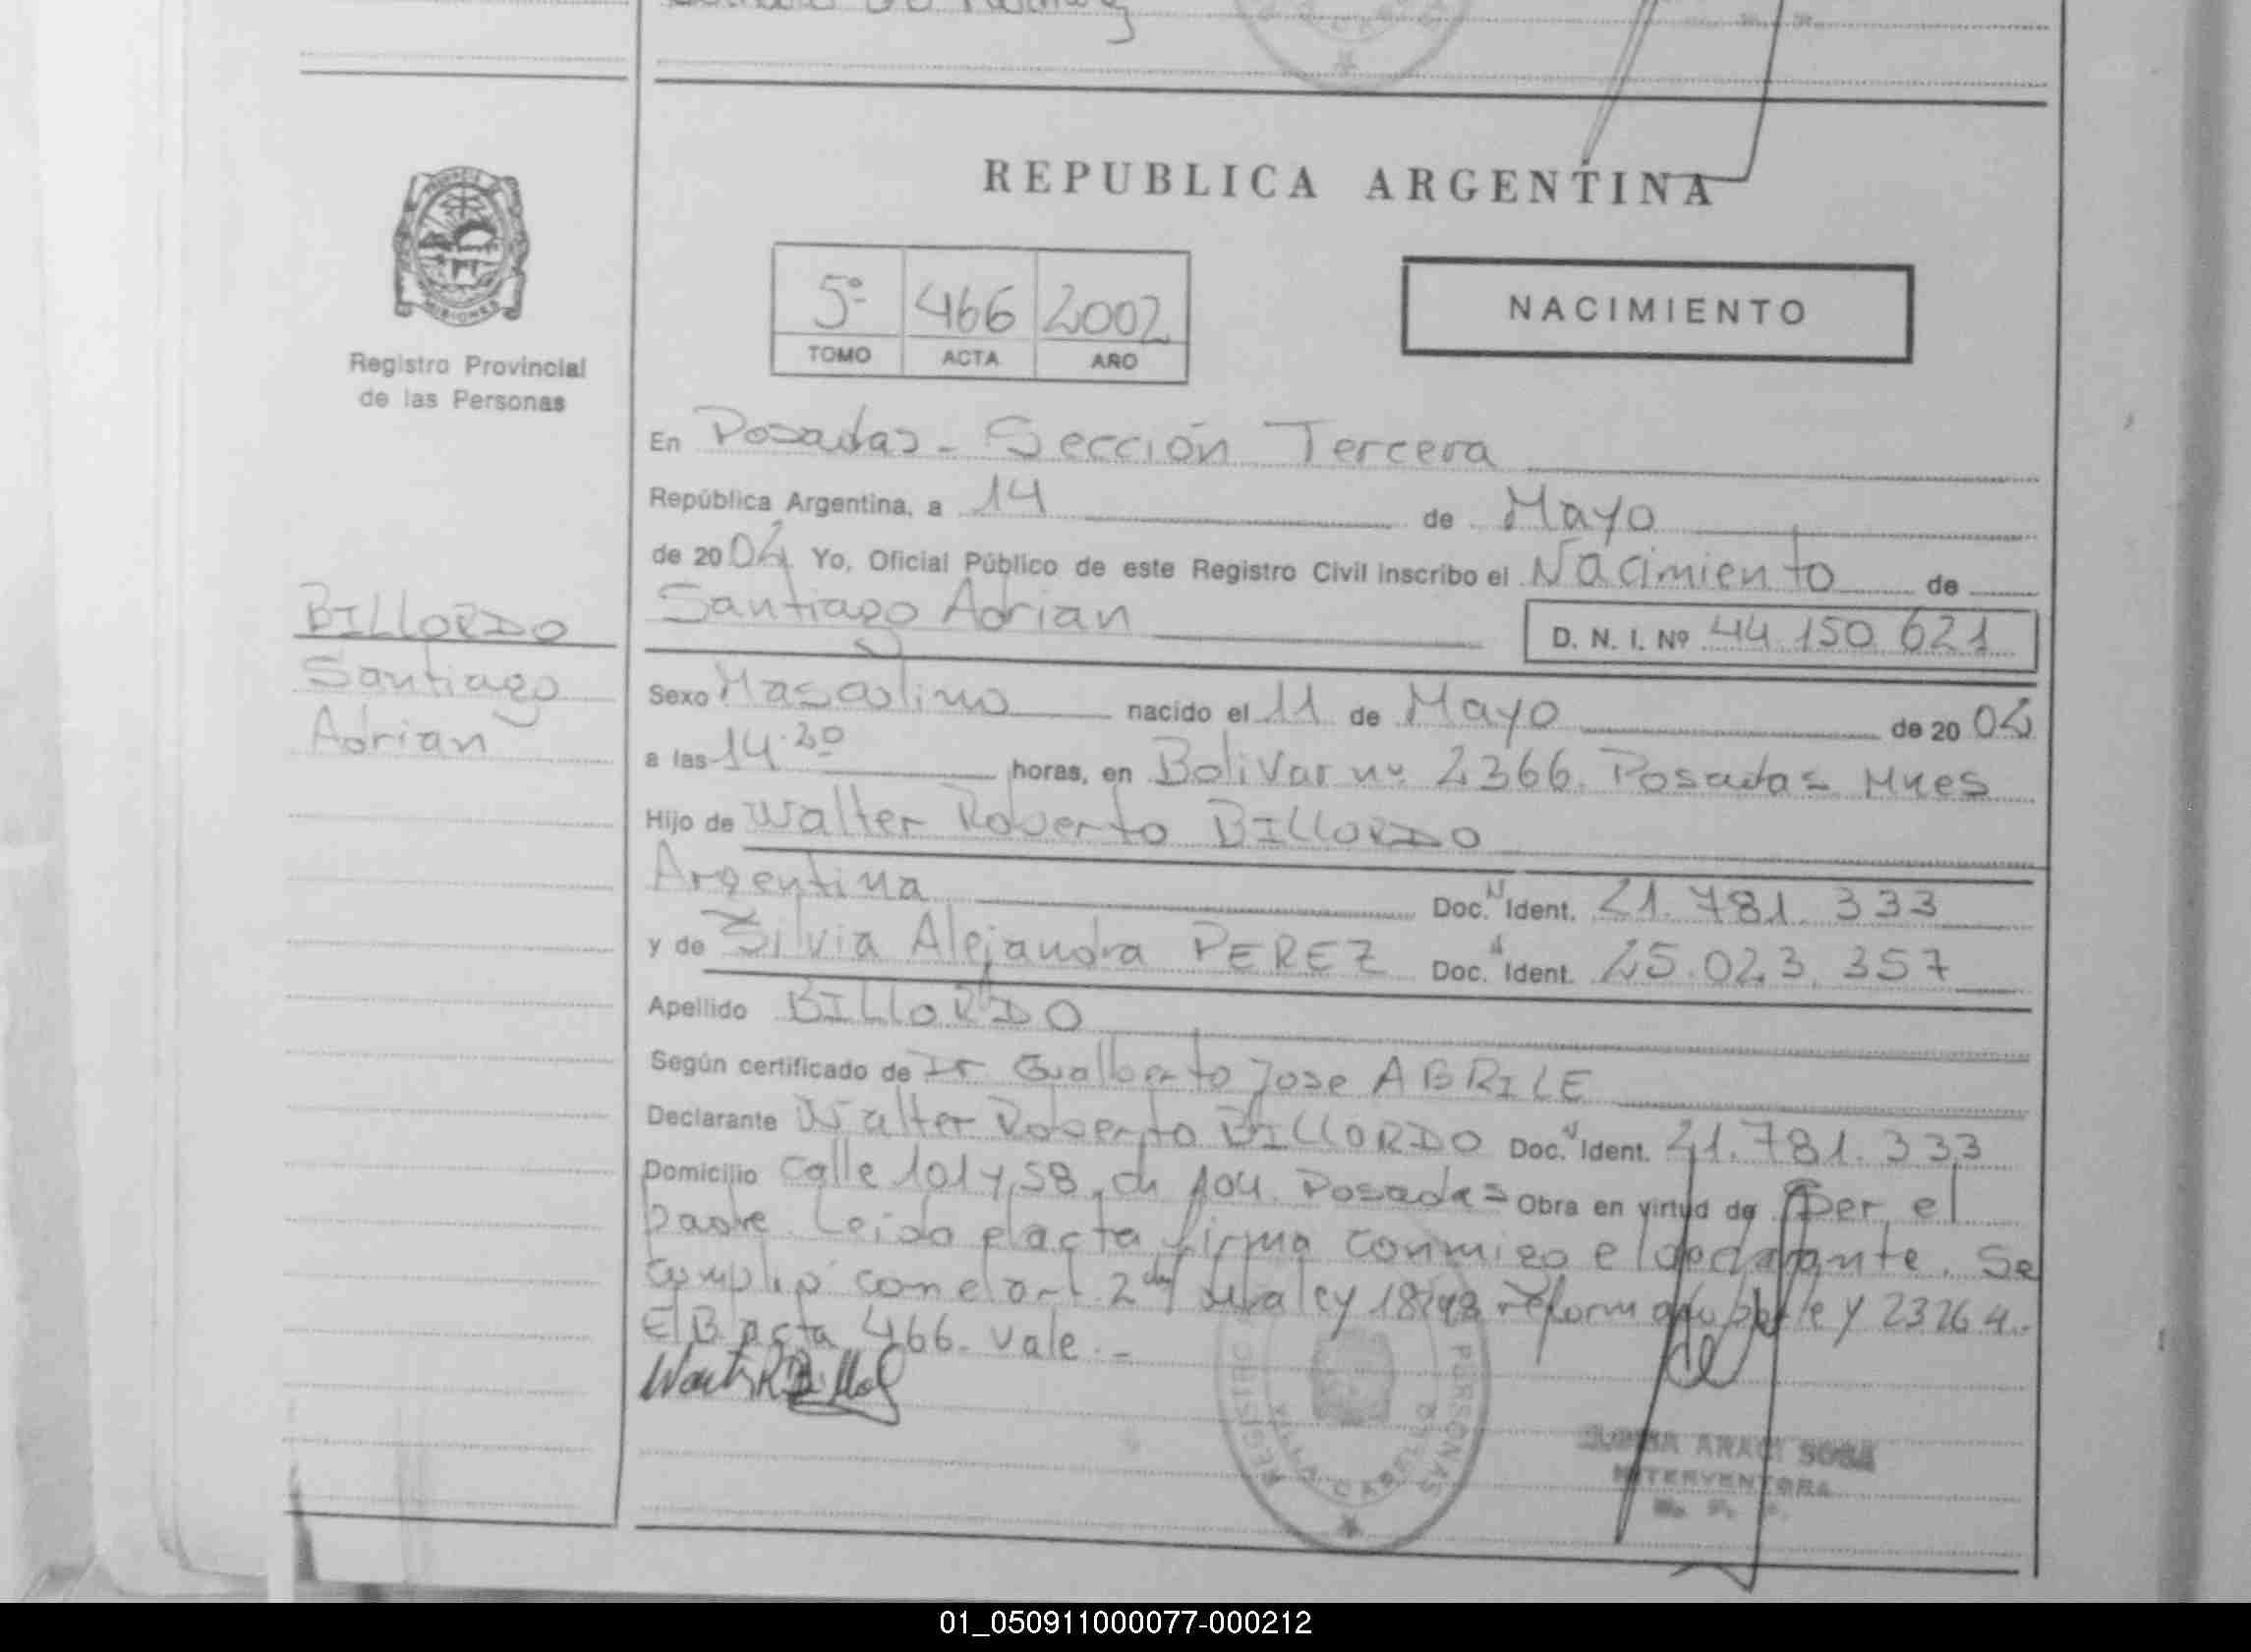 REPUBLICA ARGENTINA
5º 466 2002
TOMO ACTA AÑO
NACIMIENTO
Registro Provincial
de las Personas
BILLORDO
Santiago
Adrian
En Posadas - Sección Tercera
República Argentina, a 14 de Mayo
de 2004 Yo, Oficial Público de este Registro Civil inscribo el Nacimiento de
Santiago Adrian D. N. I. Nº 44 150 621
Sexo Masculino nacido el 11 de Mayo de 2004
a las 14:20 horas, en Bolivar nº 2366. Posadas Mnes
Hijo de Walter Roberto BILLORDO
Argentina Doc. Ident. 21.781.333
y de Silvia Alejandra PEREZ Doc. Ident. 25.023.357
Apellido BILLORDO
Según certificado de Dr Gualberto Jose ABRILE
Declarante Walter Roberto BILLORDO Doc. Ident. 21.781.333
Domicilio Calle 101 y 58, ch 104. Posadas Obra en virtud de Ser el
padre. Leida el acta firma conmigo el declarante. Se
cumplio con el art. 2 de la ley 18248 reformado por ley 23264.
E/B acta 466. Vale.-
REGISTRO PERSONAS
INTERVENTORA
01_050911000077-000212